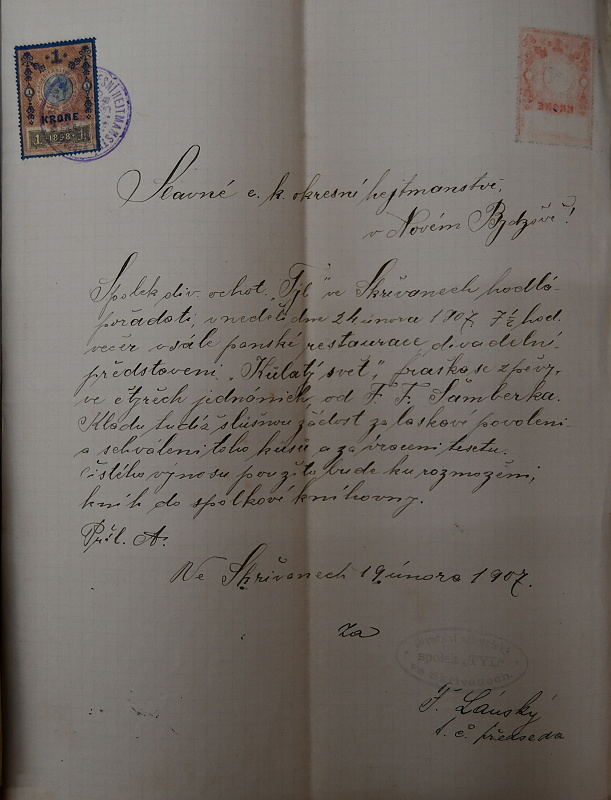 1
KRONE
1. 1898 1.
OKRESNÍ HEJTMANSTVÍ
KRONE
Slavné c. k. okresní hejtmanství,
v Novém Bydžově!
Spolek div. ochot. „Tyl" ve Skřivanech hodlá
pořádati, v neděli dne 24 února 1907 7½ hod.
večer v sále panské restaurace divadelní
představení „Kulatý svět", fraška se zpěvy,
ve čtyřech jednáních, od F. F. Šamberka.
Kladu tudíž slušnou žádost za laskavé povolení
a schválení toho kusu a za vrácení textu.
Čistého výnosu použito bude ku rozmožení,
knih do spolkové knihovny.
Příl. A.
Ve Skřivanech 19 února 1907.
za
spolek „TYL"
ve Skřivanech.
F. Lánský
t. č. předseda